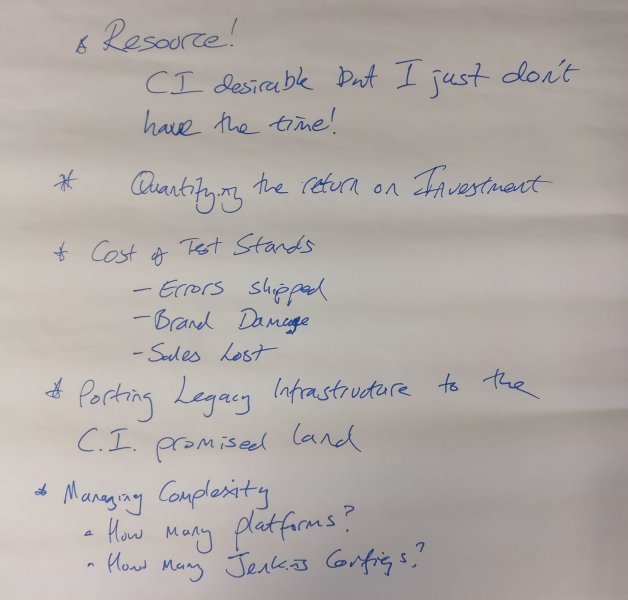 * Resource!
CI desirable but I just don't
have the time!
* Quantifying the return on Investment
* Cost of Test Stands
- Errors shipped
- Brand Damage
- Sales Lost
* Porting Legacy Infrastructure to the
C.I. promised land
* Managing Complexity
• How many platforms?
• How Many Jenkins Configs?